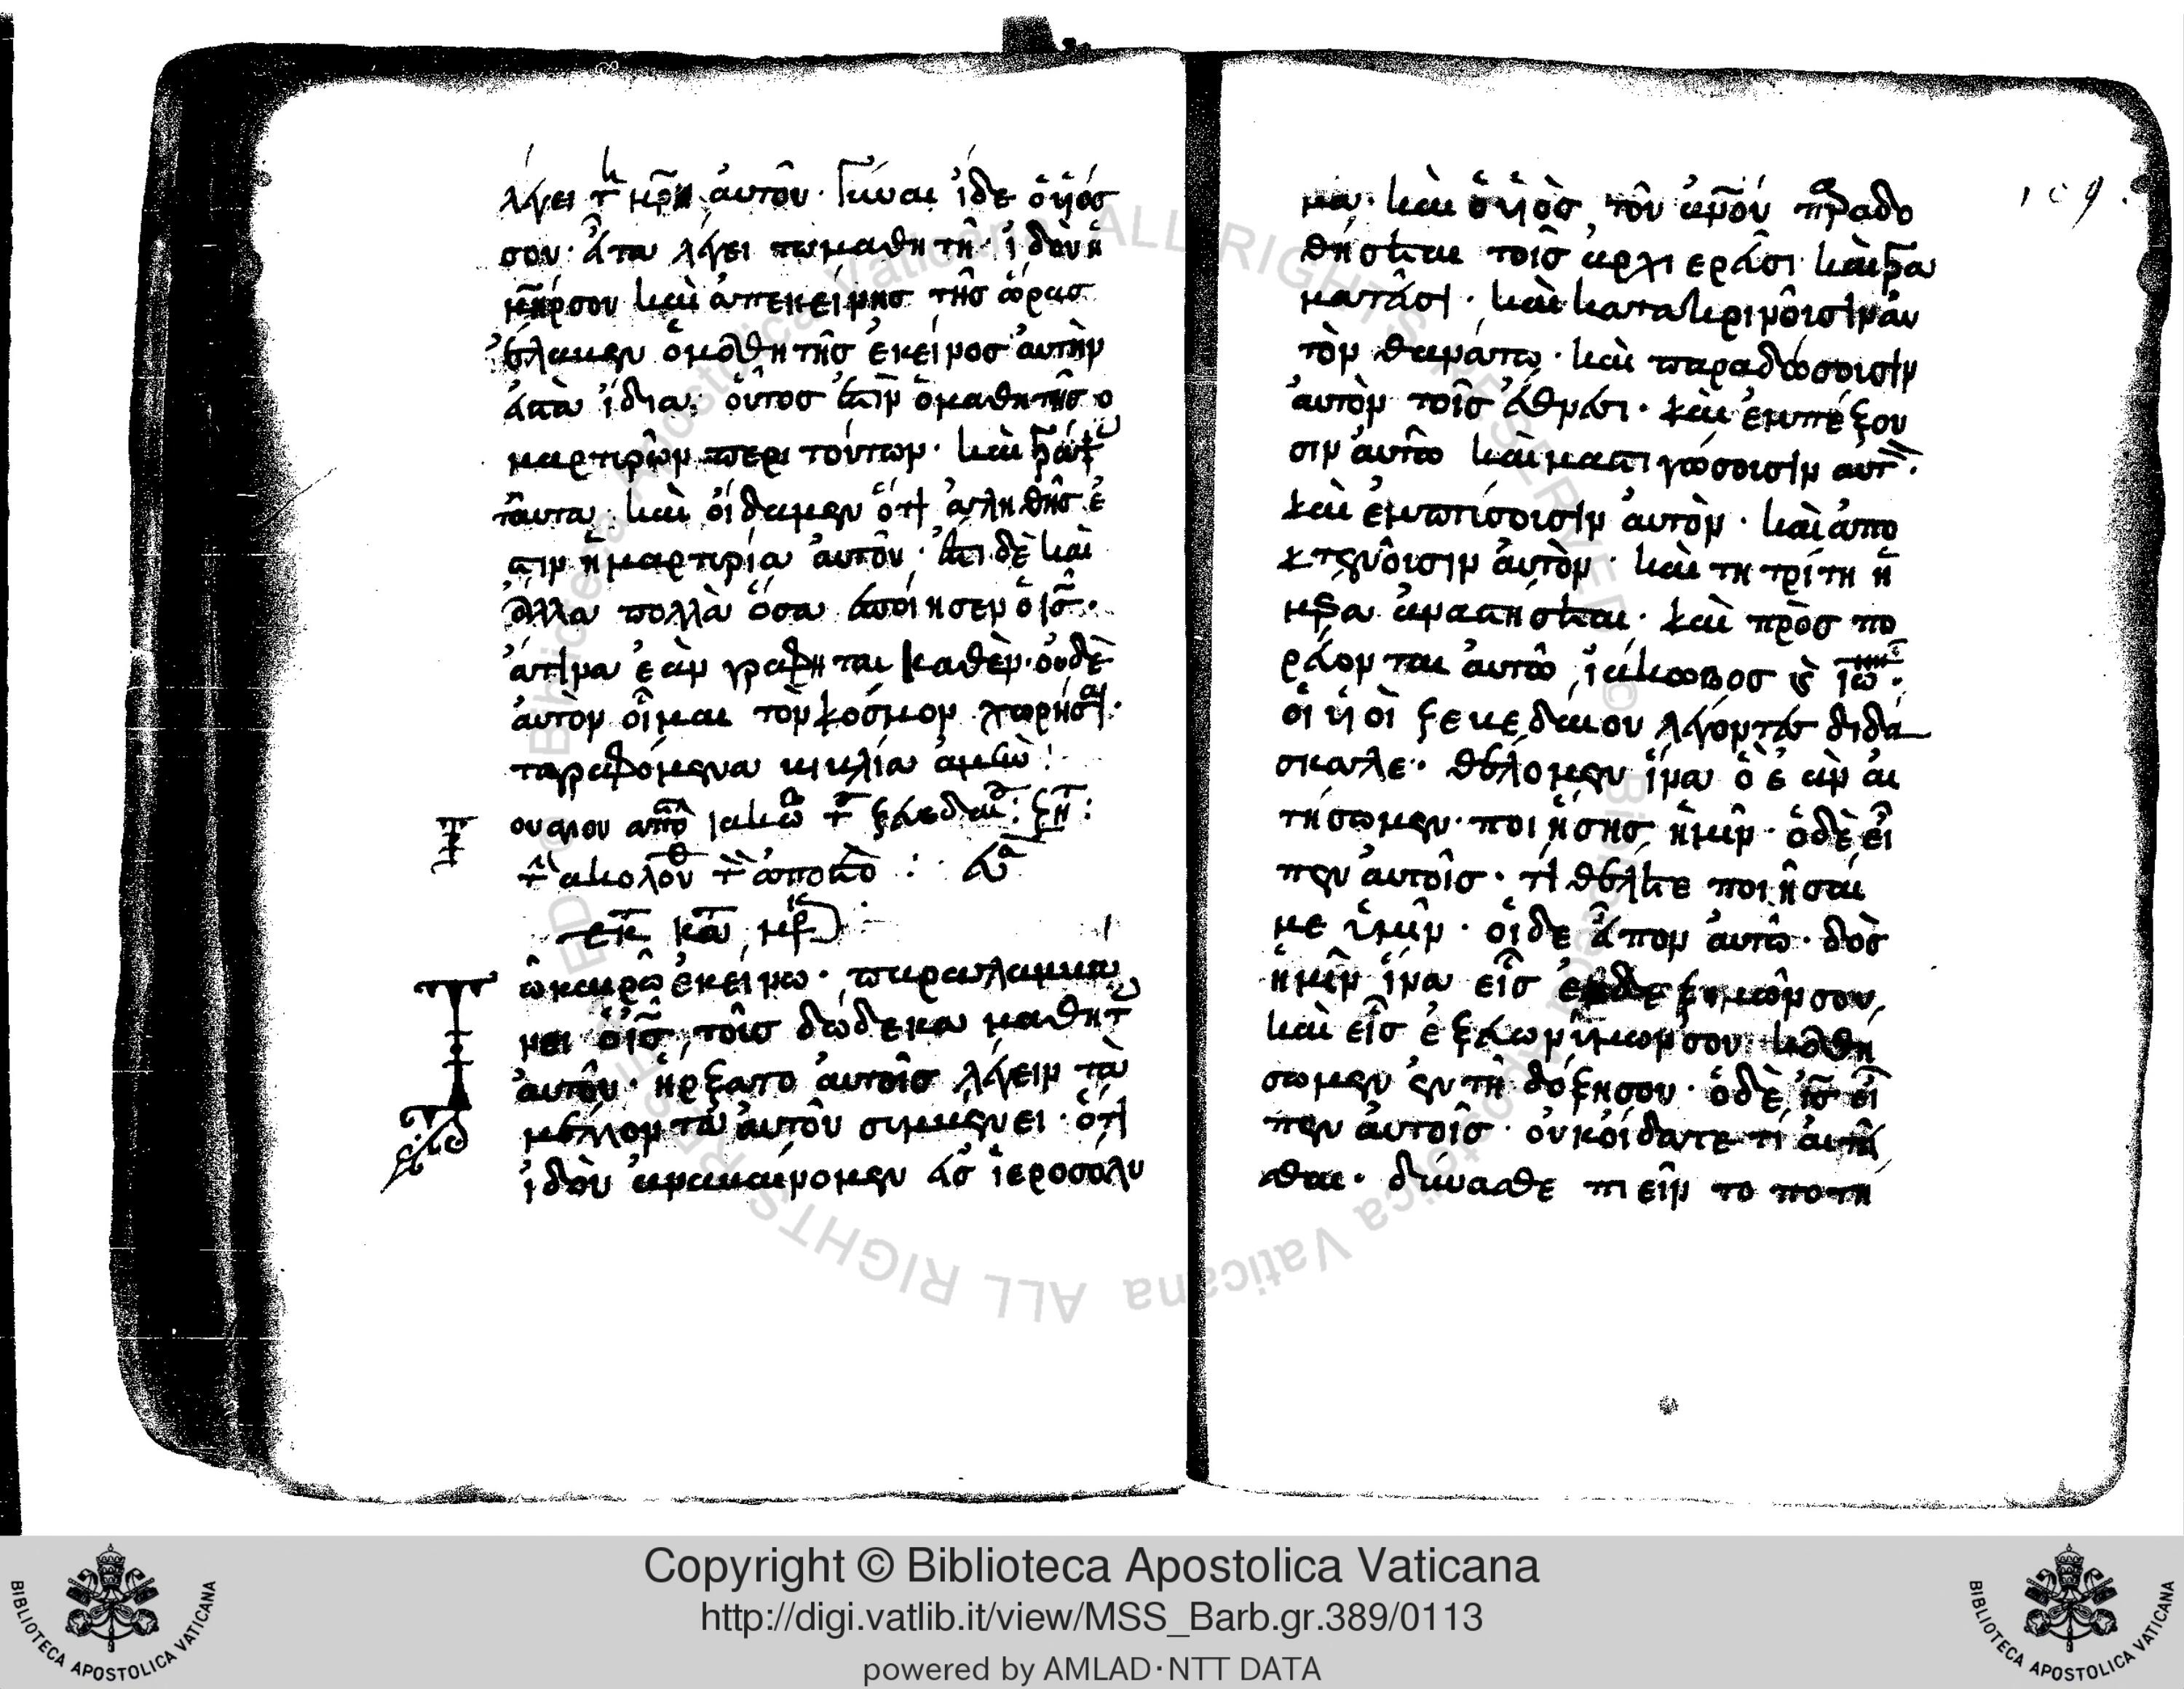 λέγει τῆ μρι αὐτοῦ· Γύναι ἴδε ὁ ὑιός
σου· εἶτα λέγει τω μαθητῆ· ἰδοὺ ἡ
μηρ σου καὶ ἀπεκείνης τῆς ὥρας
ἔλαβεν ὁ μαθητῆς ἐκείνος αὐτὴν
εἰς τὰ ἴδια· οὗτος ἐστὶν ὁ μαθητῆς ὁ
μαρτυρῶν περι τούτων· καὶ γράψ
ταῦτα· καὶ οἴδαμεν ὅτι ἀληθῆς ἐ
στιν ἡ μαρτυρία αὐτοῦ· ἔστι δὲ καὶ
ἄλλα πολλὰ ὅσα ἐποίησεν ὁ ις·
ἅτινα ἐὰν γράφηται καθὲν· οὐδὲ
αὐτὸν οἶμαι τὸν κόσμον χωρῆσαι·
τα γραφόμενα βιβλία ἀμήν:
τ ακολου τ αποστο
εκ κατ μρ
Τῶ καιρῶ ἐκείνω· παραλαμβά
νει ὁ ις τοῖς δώδεκα μαθητ
αὐτοῦ· ἤρξατο αὐτοῖς λέγειν τὰ
μέλλοντα αὐτοῦ συμβένει· ὅτι
ἰδοὺ ἀναβαίνομεν εἰς ἱεροσόλυ
109.
μα· καὶ ὁ ὑιὸς τοῦ ανου παραδο
θήσεται τοῖς ἀρχιερεῦσι καὶ γρα
ματεῦσι· καὶ κατακρινοῦσιν αυ
τὸν θανάτω· καὶ παραδώσουσιν
αὐτὸν τοῖς ἔθνεσι· καὶ ἐμπέξου
σιν αὐτῶ καὶ μαστιγώσουσιν αυτ·
καὶ ἐμπτίσουσιν αὐτὸν· καὶ ἀπο
κτενοῦσιν αὐτὸν· καὶ τη τρίτη ἡ
μέρα ἀναστήσεται· καὶ πρὸς πο
ρεύονται αὐτῶ ἰάκωβος καὶ ιω·
οἱ ὑιοὶ ζεβεδαίου λέγοντες διδά
σκαλε· θέλομεν ἵνα ὃ ἐὰν αι
τήσωμεν· ποιήσης ἡμῖν· ὁ δὲ εἶ
πεν αὐτοῖς· τί θέλετε ποιῆσαι
με ὑμῖν· οἱ δε εἶπον αὐτῶ· δὸς
ἡμῖν ἵνα εἷς ἐκ δεξιῶν σου,
καὶ εἷς ἐξ εὐωνύμων σου καθή
σωμεν ἐν τῆ δόξη σου· ὁ δὲ ις εἶ
πεν αὐτοῖς· οὐκ οἴδατε τί αιτεῖ
σθαι· δύνασθε πιεῖν το ποτή
Copyright © Biblioteca Apostolica Vaticana
http://digi.vatlib.it/view/MSS_Barb.gr.389/0113
powered by AMLAD·NTT DATA
BIBLIOTECA APOSTOLICA VATICANA
BIBLIOTECA APOSTOLICA VATICANA